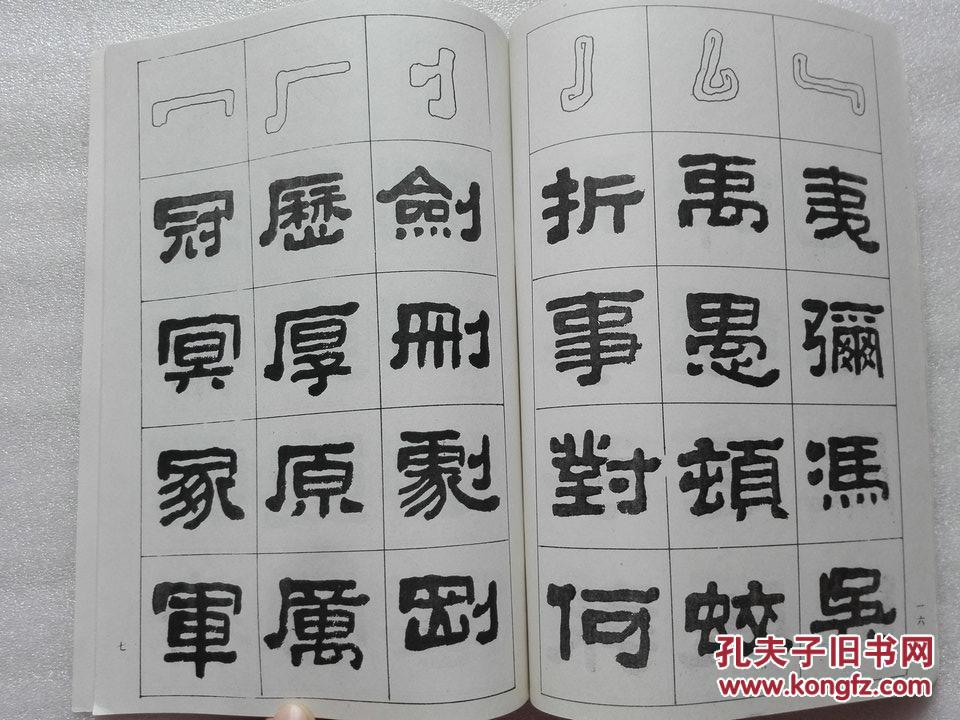 夷彌馮吳
禹愚頓蛟
折事對何
一六
劍刪劇剛
歷厚原厲
冠冥冢軍
七
孔夫子旧书网
www.kongfz.com